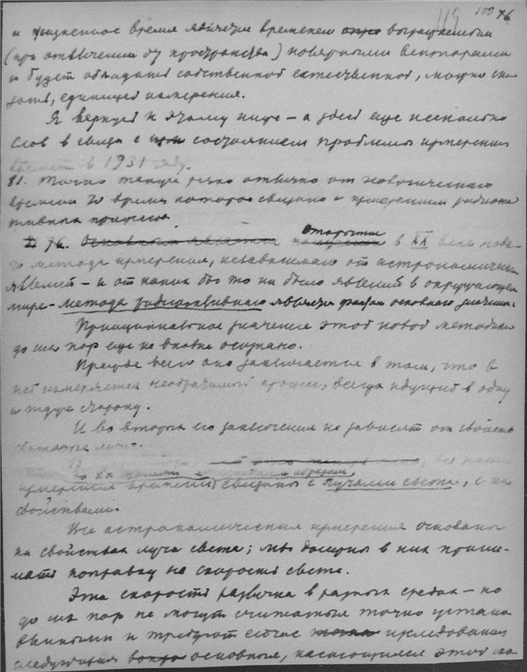 119 100 76
и жизненное время явится временем выразимым
(при отвлечении от пространства) полярными векторами
и будет обладать собственной естественной, можно ска-
зать, единицей измерения.
Я вернусь к этому ниже – а здесь еще несколько
слов в связи с состоянием проблемы измерения
времени в 1931 году.
81. Точно также резко отлично от
времени то время, которое связано с измерением радиоак-
тивных процессов
76. Основным является открытие в XX веке ново-
го метода измерения, независимого от астрономических
явлений – и от каких бы то ни было явлений в окружающем
мире – метода радиоактивного явления распада основного значения.
Принципиальное значение этой новой методики
до сих пор еще не вполне осознано.
Прежде всего оно заключается в том, что в
ней измеряется необратимый процесс, всегда идущий в одну
и ту же сторону.
И во вторых его заключения не зависят от свойств
световых
все наши
измерения времени связаны с лучами света, с их
свойствами.
Все астрономические измерения основаны
на свойствах луча света; мы должны в них прини-
мать поправку на скорость света.
Эта скорость различна в разных средах – но
до сих пор не могут считаться точно устано-
вленными и требуют сейчас исследования
следующие основные, касающиеся этой